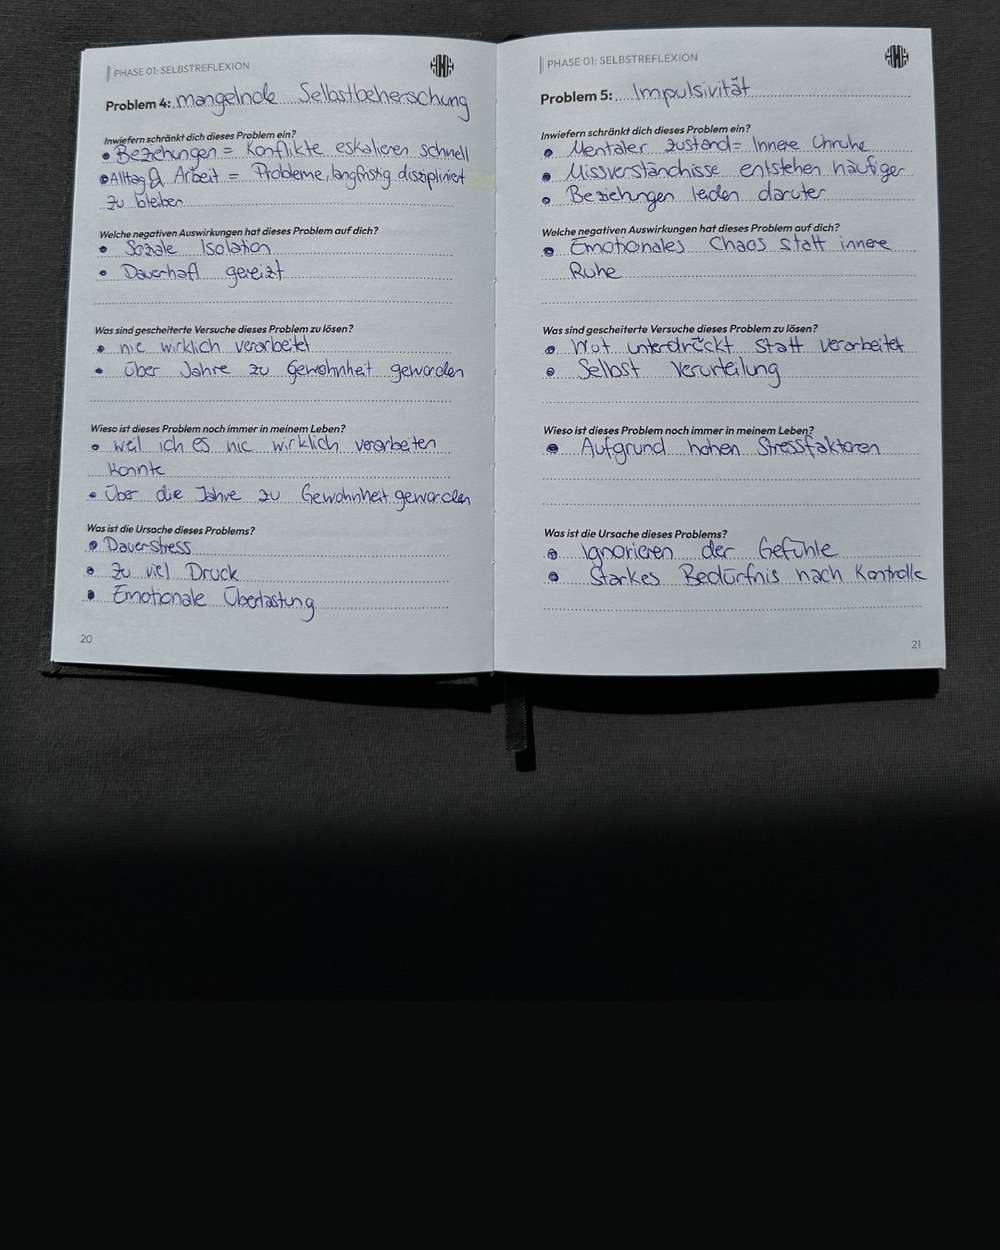 PHASE 01: SELBSTREFLEXION
Problem 4: mangelnde Selbstbeherschung
Inwiefern schränkt dich dieses Problem ein?
• Beziehungen = Konflikte eskalieren schnell
• Alltag & Arbeit = Probleme, langfristig diszipliniert
zu bleiben
Welche negativen Auswirkungen hat dieses Problem auf dich?
• Soziale Isolation
• Dauerhaft gereizt
Was sind gescheiterte Versuche dieses Problem zu lösen?
• nie wirklich verarbeitet
• über Jahre zu Gewohnheit geworden
Wieso ist dieses Problem noch immer in meinem Leben?
• weil ich es nie wirklich verarbeiten
konnte
• Über die Jahre zu Gewohnheit geworden
Was ist die Ursache dieses Problems?
• Dauerstress
• Zu viel Druck
• Emotionale Überlastung
20
PHASE 01: SELBSTREFLEXION
Problem 5: Impulsivität
Inwiefern schränkt dich dieses Problem ein?
• Mentaler zustand = Innere Unruhe
• Missverständnisse entstehen häufiger
• Beziehungen leiden darunter
Welche negativen Auswirkungen hat dieses Problem auf dich?
• Emotionales Chaos statt innere
Ruhe
Was sind gescheiterte Versuche dieses Problem zu lösen?
• Wut unterdrückt statt verarbeitet
• Selbst Verurteilung
Wieso ist dieses Problem noch immer in meinem Leben?
• Aufgrund hohen Stressfaktoren
Was ist die Ursache dieses Problems?
• Ignorieren der Gefühle
• Starkes Bedürfnis nach Kontrolle
21